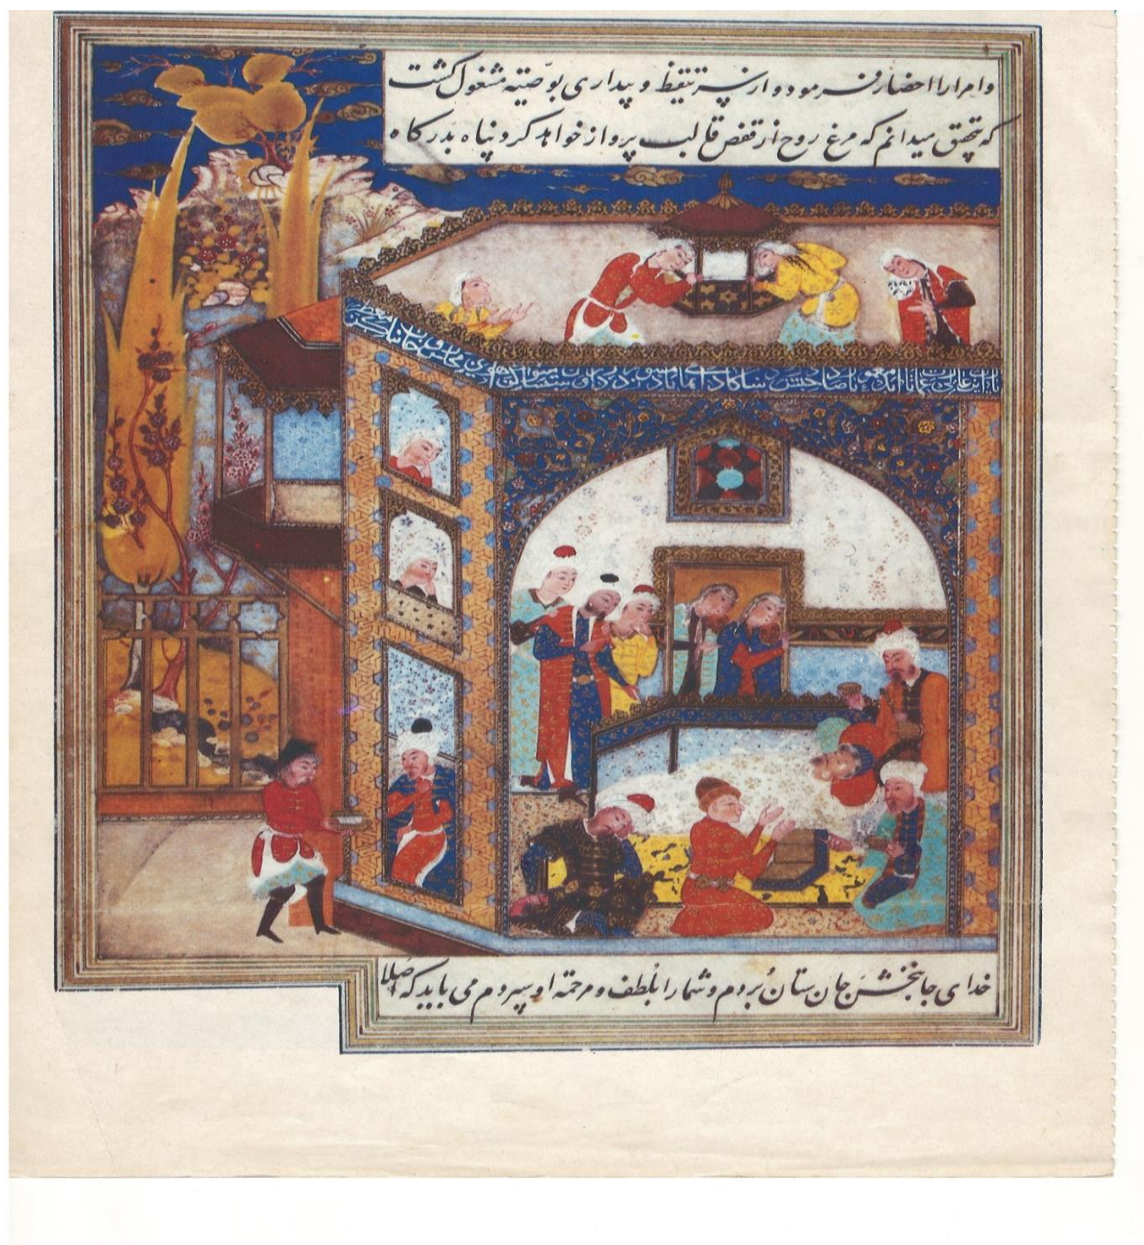 و امرا را احضار فرمود و از سر تیقظ و بیداری بوصیّة مشغول گشت
که تحقیق میدانم که مرغ روح از قفص قالب پرواز خواهد کرد و پناه بدرگاه
خدای جانبخش جان ستان بُردم و شما را بلطف و مرحمة او سپردم می باید که اصلا